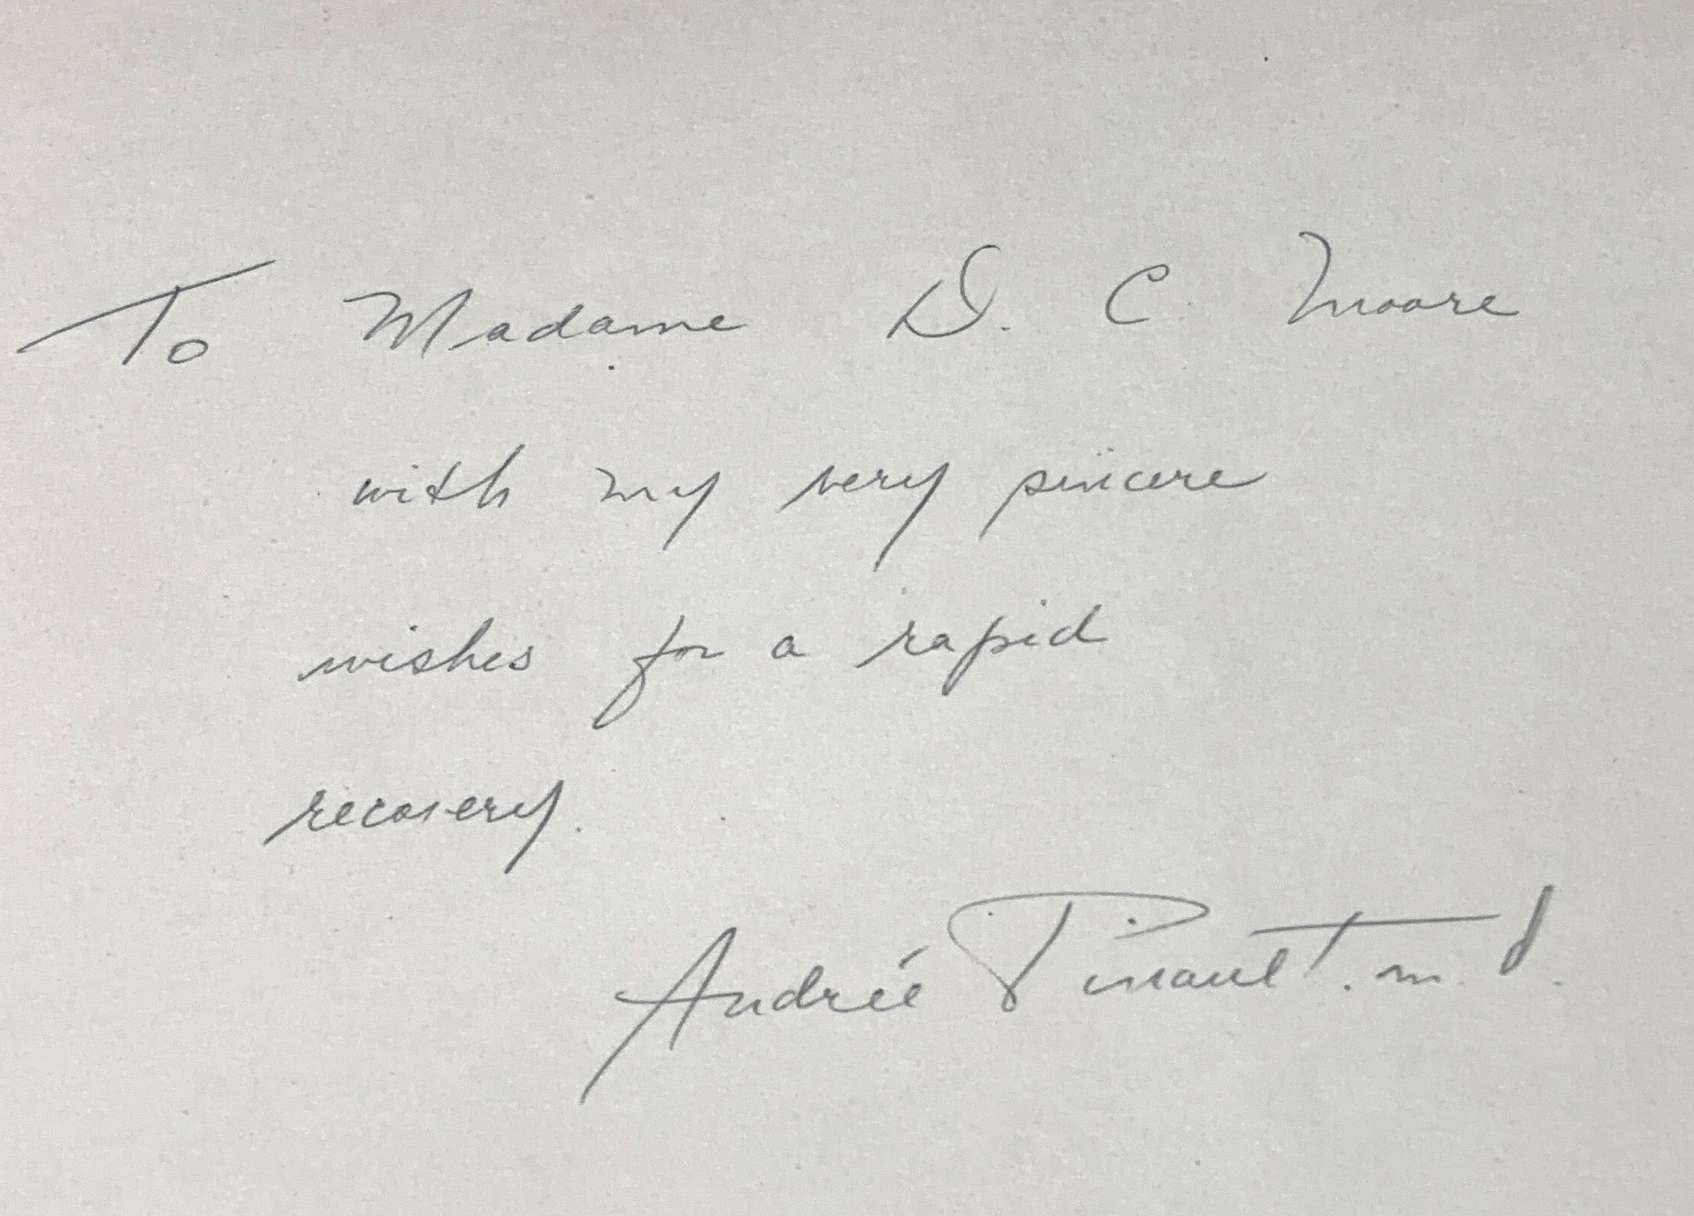 To Madame D. C. Moore
with my very sincere
wishes for a rapid
recovery.
Andrée Pinault. m. d.